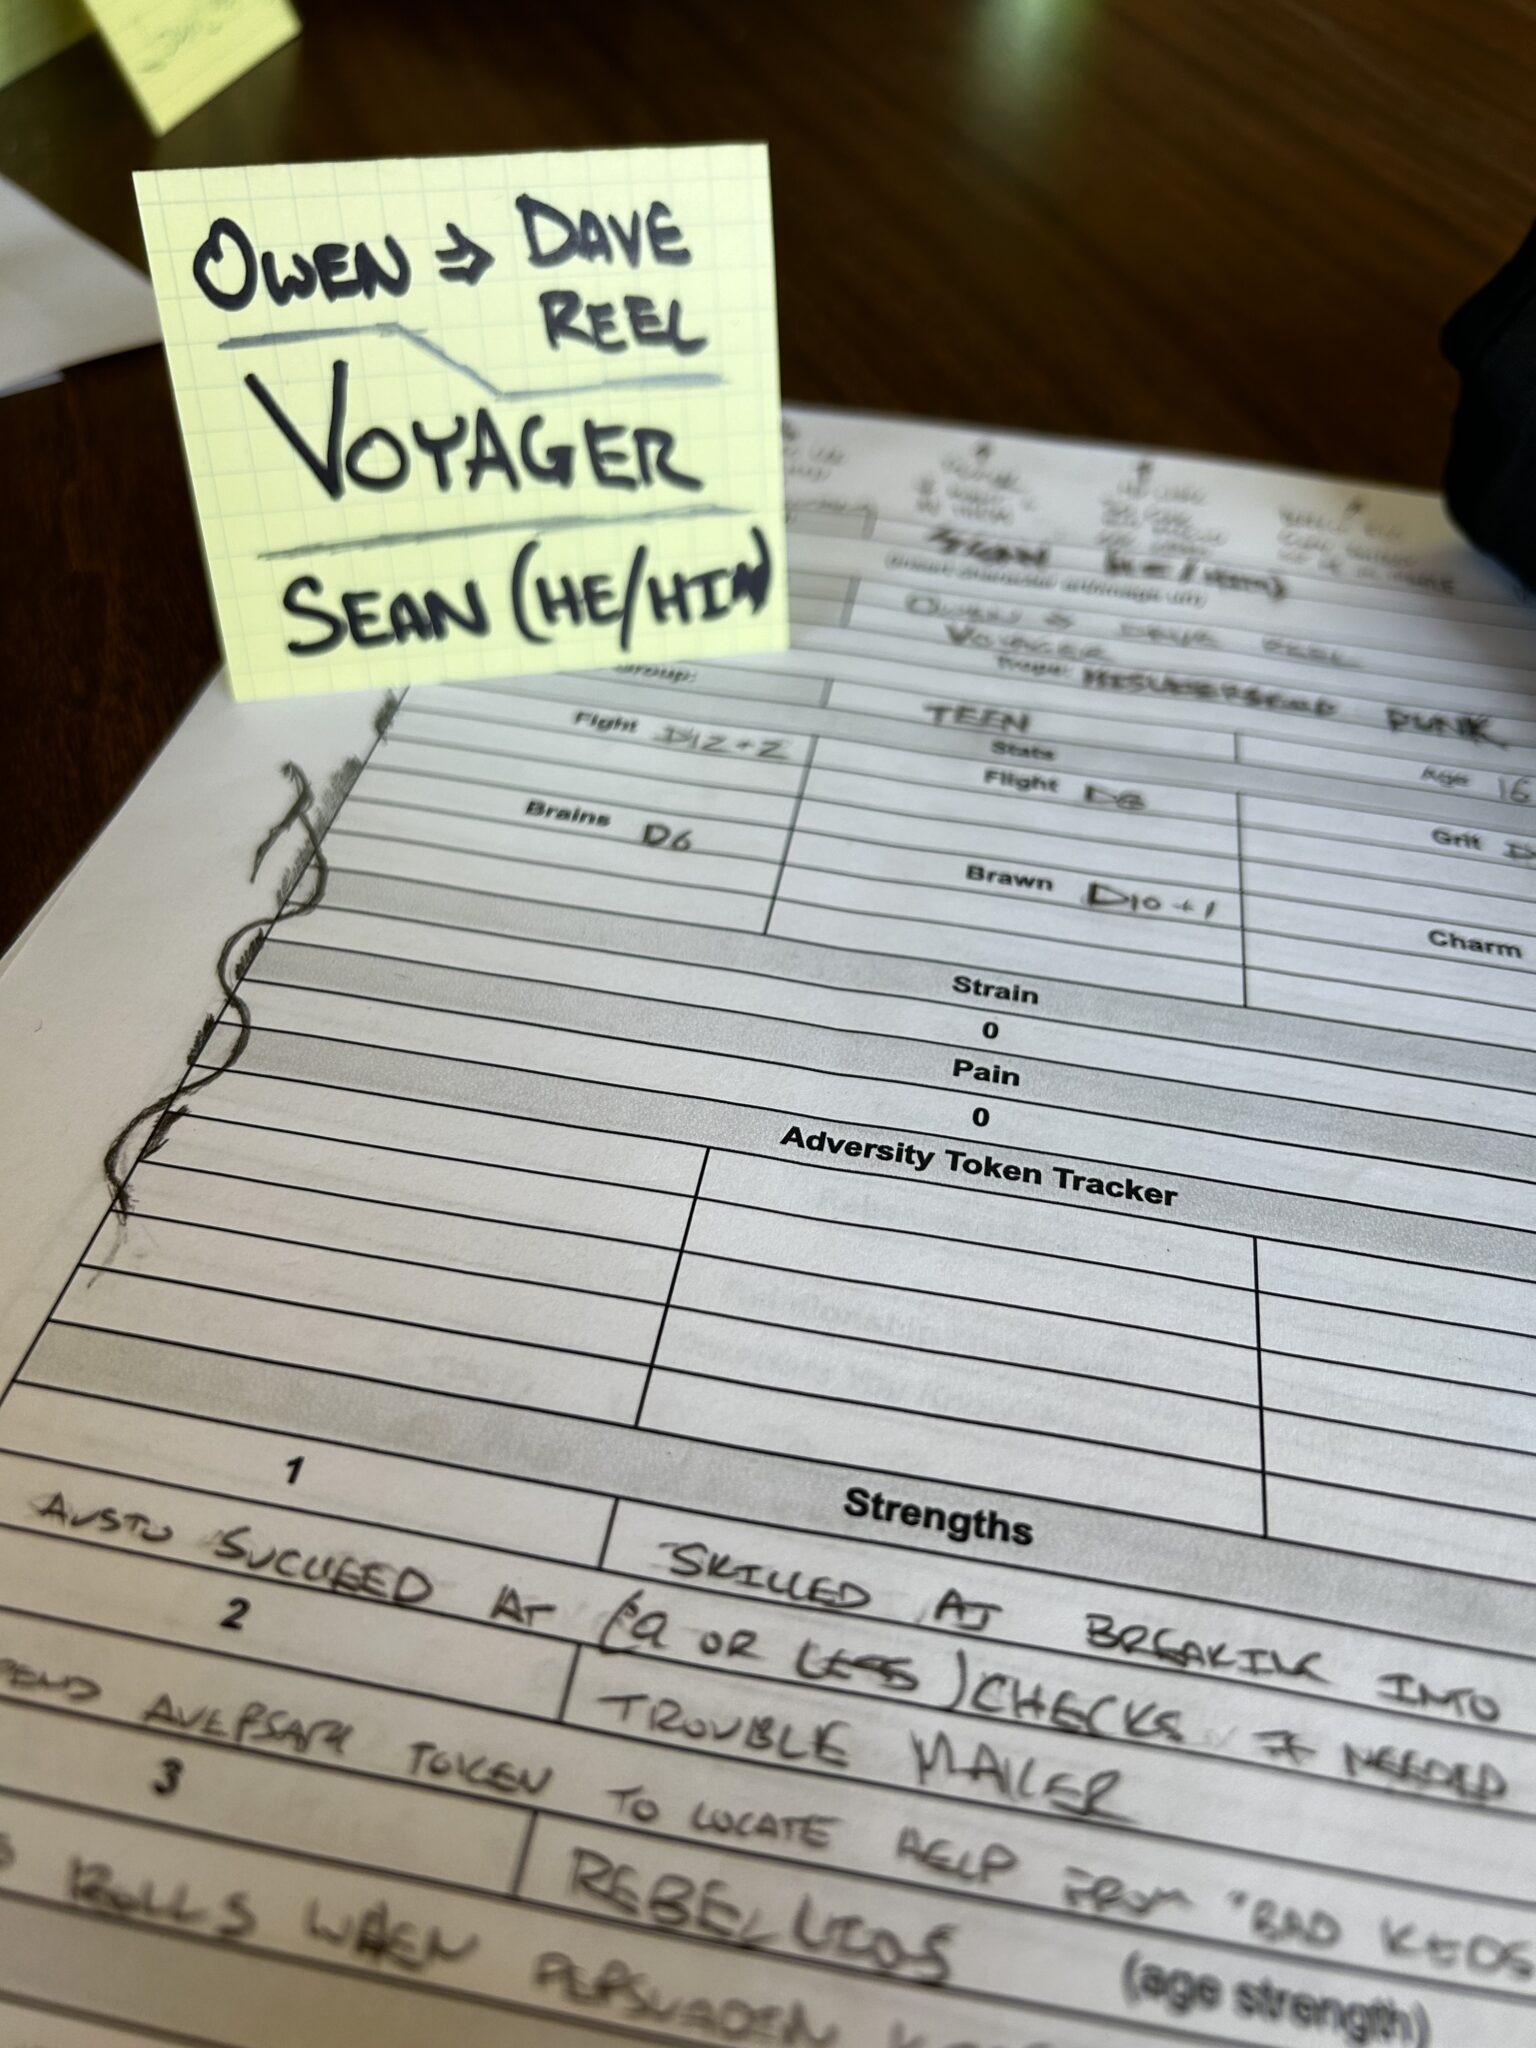 OWEN ⇒ DAVE
REEL
VOYAGER
SEAN (HE/HIM)
SEAN (HE/HIM)
OWEN ⇒ DAVE REEL
VOYAGER
Group:
Trope: PUNK
TEEN
Age 16
Stats
Fight D12+2
Flight D8
Grit
Brains D6
Brawn D10+1
Charm
Strain
0
Pain
0
Adversity Token Tracker
Strengths
1
SKILLED AT BREAKING INTO
AUSTO SUCCEED AT (9 OR LESS) CHECKS IF NEEDED
2
TROUBLE MAILER
AVERSARY TOKEN TO LOCATE HELP FROM "BAD KIDS
3
REBELLIOS
(age strength)
ROLLS WHEN PERSUADIN